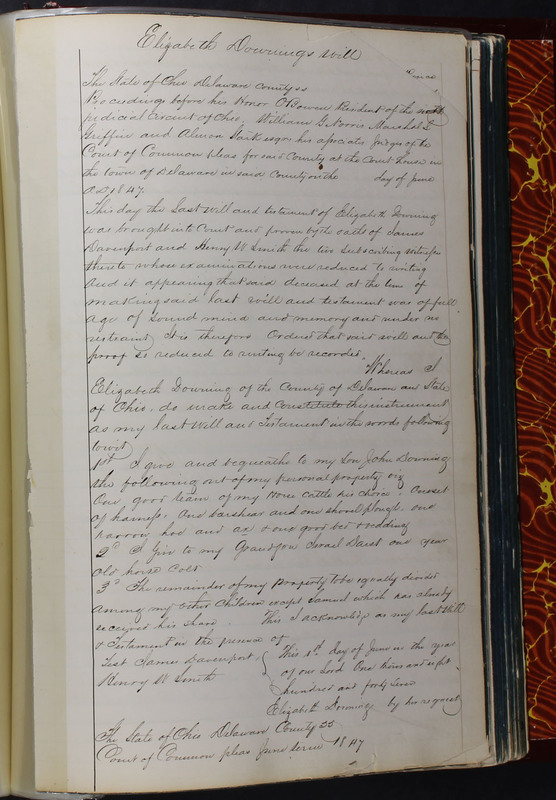 Elizabeth Downings Will
The State of Ohio Delaware County ss
Proceedings before his Honor O Bowen President of the
judicial Circuit of Ohio, William G Norris Marshal L
Griffin and Almon Stark esqrs his associate Judges of the
Court of Common pleas for said County at the Court house in
the town of Delaware in said County on the day of June
AD 1847.
This day the Last will and testament of Elizabeth Downing
was brought into Court and proven by the oaths of James
Davenport and Henry W Smith the two Subscribing witnesses
thereto whose examinations were reduced to writing
and it appearing that said deceased at the time of
making said last will and testament was of full
age of sound mind and memory and under no
restraint It is therefore Ordered that said will and the
proof so reduced to writing be recorded.
Whereas I
Elizabeth Downing of the County of Delaware and State
of Ohio, do make and constitute this instrument
as my last Will and Testament in the words following
towit
1st I give and bequeathe to my Son John Downing
the following art of my personal property viz
One good team of my Horse cattle his choice. One set
of harness, One barshear and one shovel plough, one
harrow hoe and ax & one good bed & bedding
2d I Give to my Grandson Israel one year
Old horse Colt
3d The remainder of my property to be equally divided
among my other Children except Samuel which has already
received his share. This I acknowledge as my last Will
& Testament in the presence of
Test James Davenport, { This 1st day of June in the year
Henry W Smith of our Lord One thous and eight
hundred and forty Seven
Elizabeth Downing by her request
The State of Ohio Delaware County SS
Court of Common pleas June term 1847